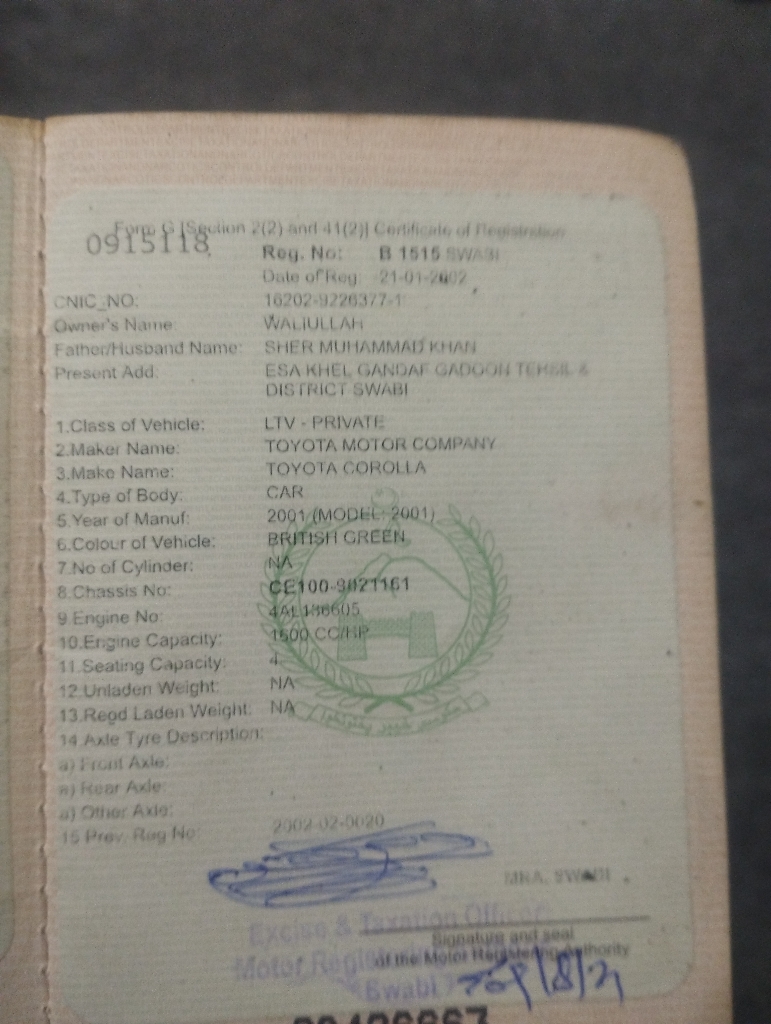 Form G [Section 2(2) and 41(2)] Certificate of Registration
0915118
Reg. No: B 1515 SWABI
Date of Reg: 21-01-2002
CNIC_NO: 16202-9226377-1
Owner's Name: WALIULLAH
Father/Husband Name: SHER MUHAMMAD KHAN
Present Add: ESA KHEL GANDAF GADOON TEHSIL &
DISTRICT SWABI
1.Class of Vehicle: LTV - PRIVATE
2.Maker Name: TOYOTA MOTOR COMPANY
3.Make Name: TOYOTA COROLLA
4.Type of Body: CAR
5.Year of Manuf: 2001 (MODEL: 2001)
6.Colour of Vehicle: BRITISH GREEN
7.No of Cylinder: NA
8.Chassis No: CE100-9021161
9.Engine No: 4AL136605
10.Engine Capacity: 1500 CC/HP
11.Seating Capacity: 4
12.Unladen Weight: NA
13.Regd Laden Weight: NA
14 Axle Tyre Description:
a) Front Axle:
a) Rear Axle:
a) Other Axle:
15 Prev. Reg No: 2002-02-0020
MRA, SWABI
Excise & Taxation Officer
Signature and seal
Motor
of the Motor Registering Authority
Swabi